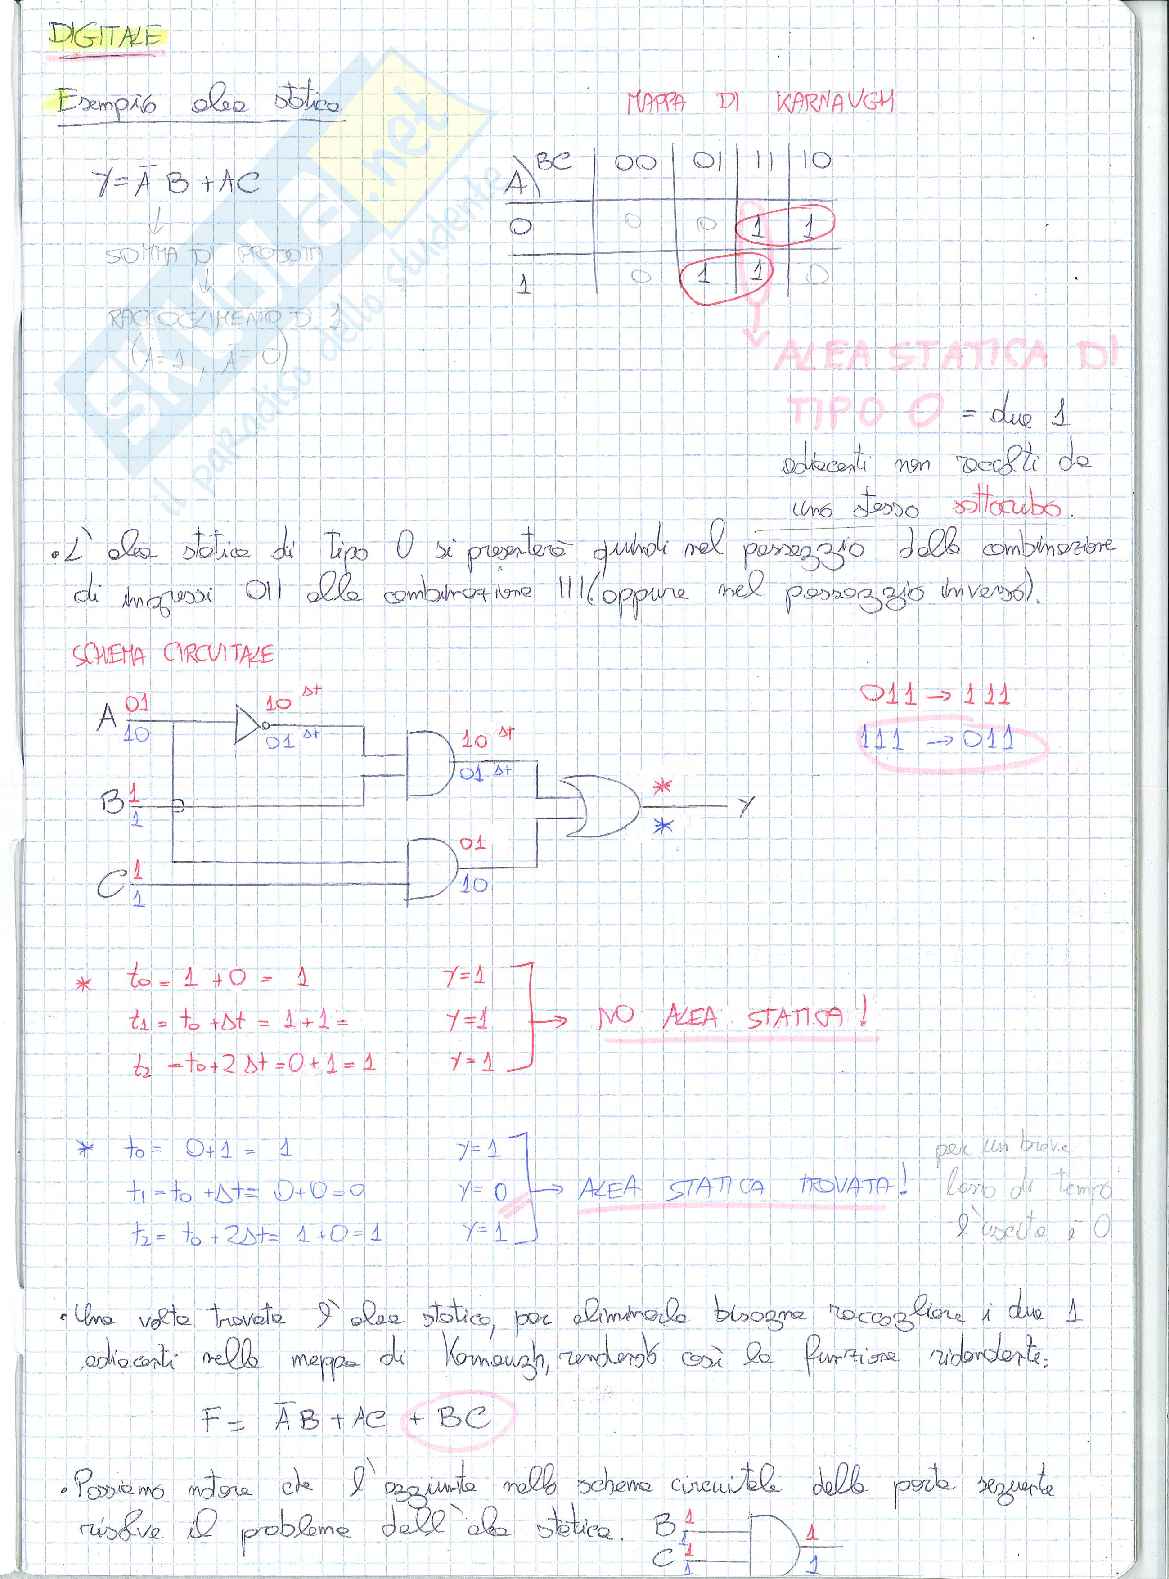 DIGITALE
Esempio alea statica
Y = A̅ B + AC
SOMMA DI PRODOTTI
RACCOGLIMENTO DI 1
(A=1, A̅=0)
MAPPA DI KARNAUGH
A\BC 00 01 11 10
0 0 0 1 1
1 0 1 1 0
ALEA STATICA DI
TIPO 0 = due 1
adiacenti non raccolti da
uno stesso sottocubo.
• L'alea statica di tipo 0 si presenterà quindi nel passaggio dalla combinazione
di ingressi 011 alla combinazione 111 (oppure nel passaggio inverso).
SCHEMA CIRCUITALE
011 → 111
111 → 011
A 01 10 10 Δt 01 Δt
10 Δt 01 Δt
B 1 1
* * Y
C 1 1
01 10
* t0 = 1 + 0 = 1 Y=1
t1 = t0 + Δt = 1 + 1 = Y=1 → NO ALEA STATICA!
t2 = t0 + 2Δt = 0 + 1 = 1 Y=1
* t0 = 0+1 = 1 Y=1
t1 = t0 + Δt = 0+0=0 Y=0 → ALEA STATICA TROVATA!
t2 = t0 + 2Δt = 1+0=1 Y=1
per un breve
lasso di tempo
l'uscita è 0
• Una volta trovata l'alea statica, per eliminarla bisogna raccogliere i due 1
adiacenti nella mappa di Karnaugh, rendendo così la funzione ridondante:
F = A̅ B + AC + BC
• Possiamo notare che l'aggiunta nello schema circuitale della porta seguente
risolve il problema dell'alea statica.
B 1 1
C 1 1
1 1
SKUOLA.net
il paradiso dello studente